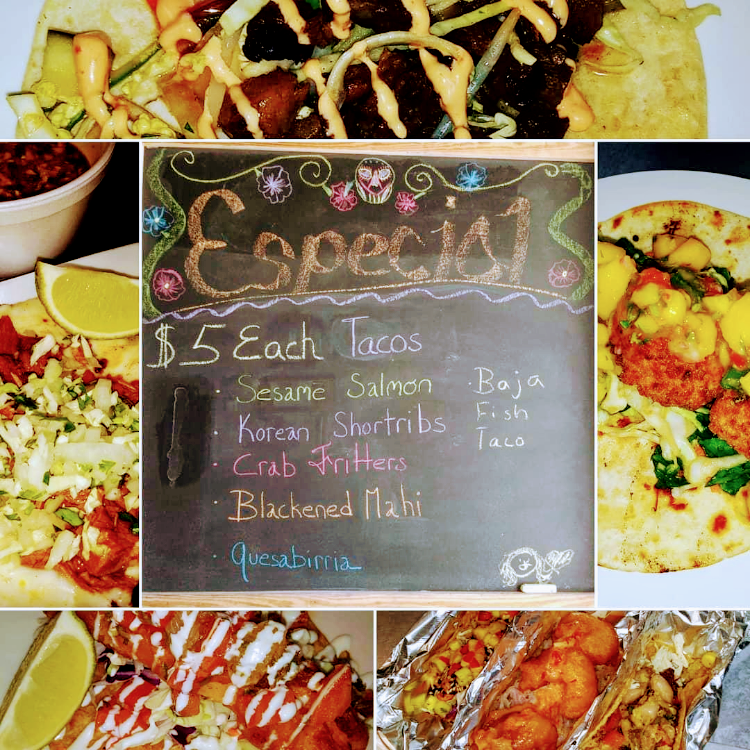 Especial
$5 Each Tacos
· Sesame Salmon
· Korean Shortribs
· Crab Fritters
· Blackened Mahi
· Quesabirria
· Baja
Fish
Taco